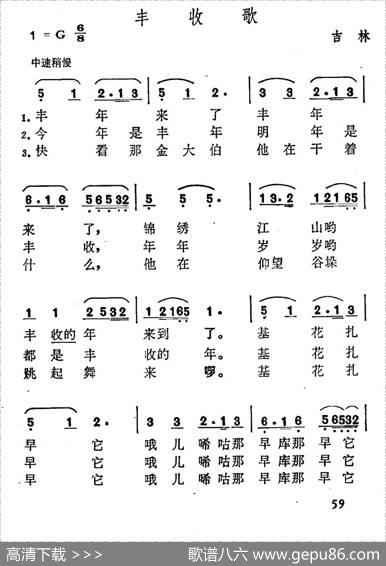 丰 收 歌
1=G 6/8
吉 林
中速稍慢
5 1 | 2·1 3 | 5 1 2· | 3 3 2·1 3 |
1.丰 年 来 了 丰 年
2.今 年是 丰 年 明 年是
3.快 看那 金大 伯 他在 干着
6·1 6 56532 | 5 5 5· | 13·2 12165 |
来 了, 锦 绣 江 山哟
丰 收, 年 年 岁 岁哟
什 么, 他 在 仰望 谷垛
1 1 2532 | 12165 1· | 5 1 2·1 3 |
丰 收的 年 来到 了。 基 花 扎
都 是 丰 收的 年。 基 花 扎
跳 起 舞 来 啰。 基 花 扎
5 1 2· | 3 3 2·1 3 | 6·1 6 56532 |
早 它 哦 儿 唏咕那 早库那 早它
早 它 哦 儿 唏咕那 早库那 早它
早 它 哦 儿 唏咕那 早库那 早它
59
高清下载 >>>
歌谱八六 www.gepu86.com